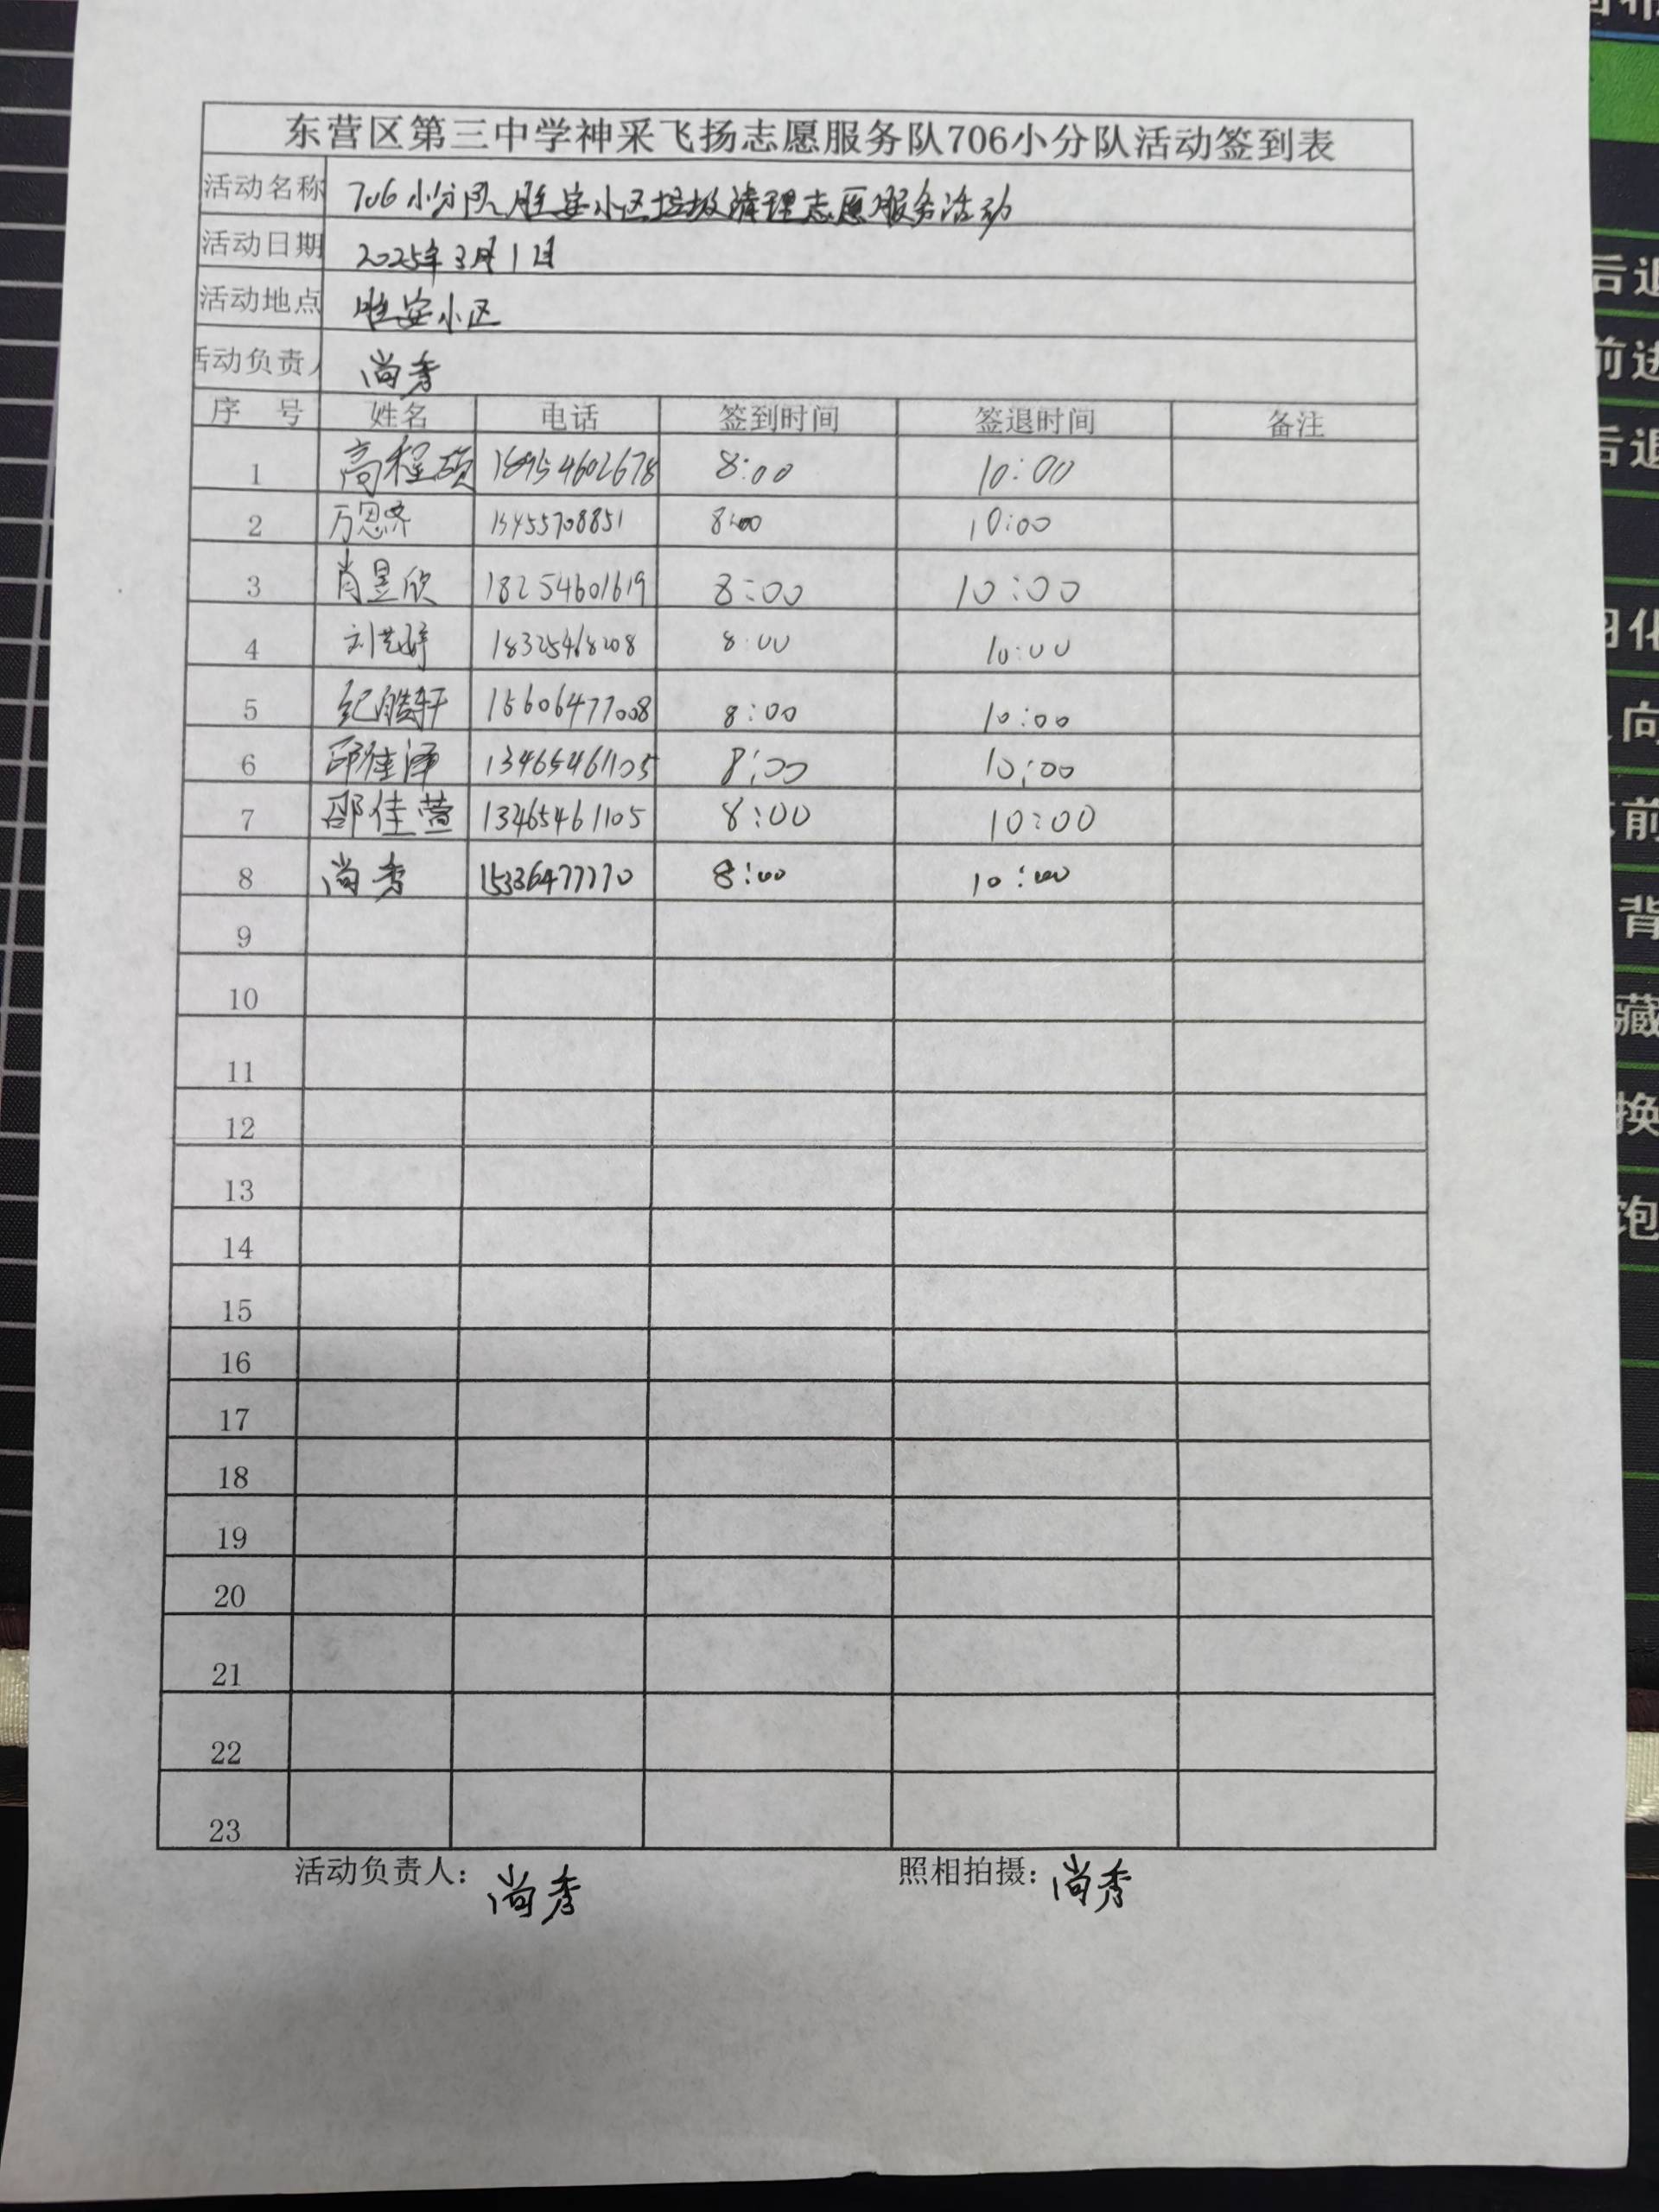 东营区第三中学神采飞扬志愿服务队706小分队活动签到表
活动名称 706小分队胜安小区垃圾清理志愿服务活动
活动日期 2025年3月1日
活动地点 胜安小区
活动负责人 尚秀
序 号 姓名 电话 签到时间 签退时间 备注
1 高程硕 18954602678 8:00 10:00
2 万思齐 8:00 10:00
3 肖昱欣 18254601619 8:00 10:00
4 8:00 10:00
5 纪皓轩 15606477008 8:00 10:00
6 邵佳泽 13465461105 8:00 10:00
7 邵佳萱 13465461105 8:00 10:00
8 尚秀 8:00 10:00
9
10
11
12
13
14
15
16
17
18
19
20
21
22
23
活动负责人：尚秀 照相拍摄：尚秀
后退
前进
后退
向
前
背
藏
换